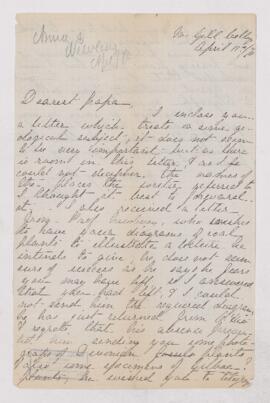 McGill College
April 11th
Dearest Papa
I enclose you
a letter which treats on some geo-
logical subject, it does not seem
to be very important but as there
is room in this letter, I send
could not decipher the names of
the places the fossils referred to
I thought it best to forward
it. I also received a letter
from Prof who wishes
to have your diagrams of coal
plants to illustrate a lecture he
intends to give, he does not seem
sure of success as he says he fears
you may have left so I answered
that you had left &
not send him the required diagrams
he has just returned from
& regrets that his absence preven-
ted him sending you some photo-
graphs of Devonian fossil plants
also some specimens of
plants he wished you to